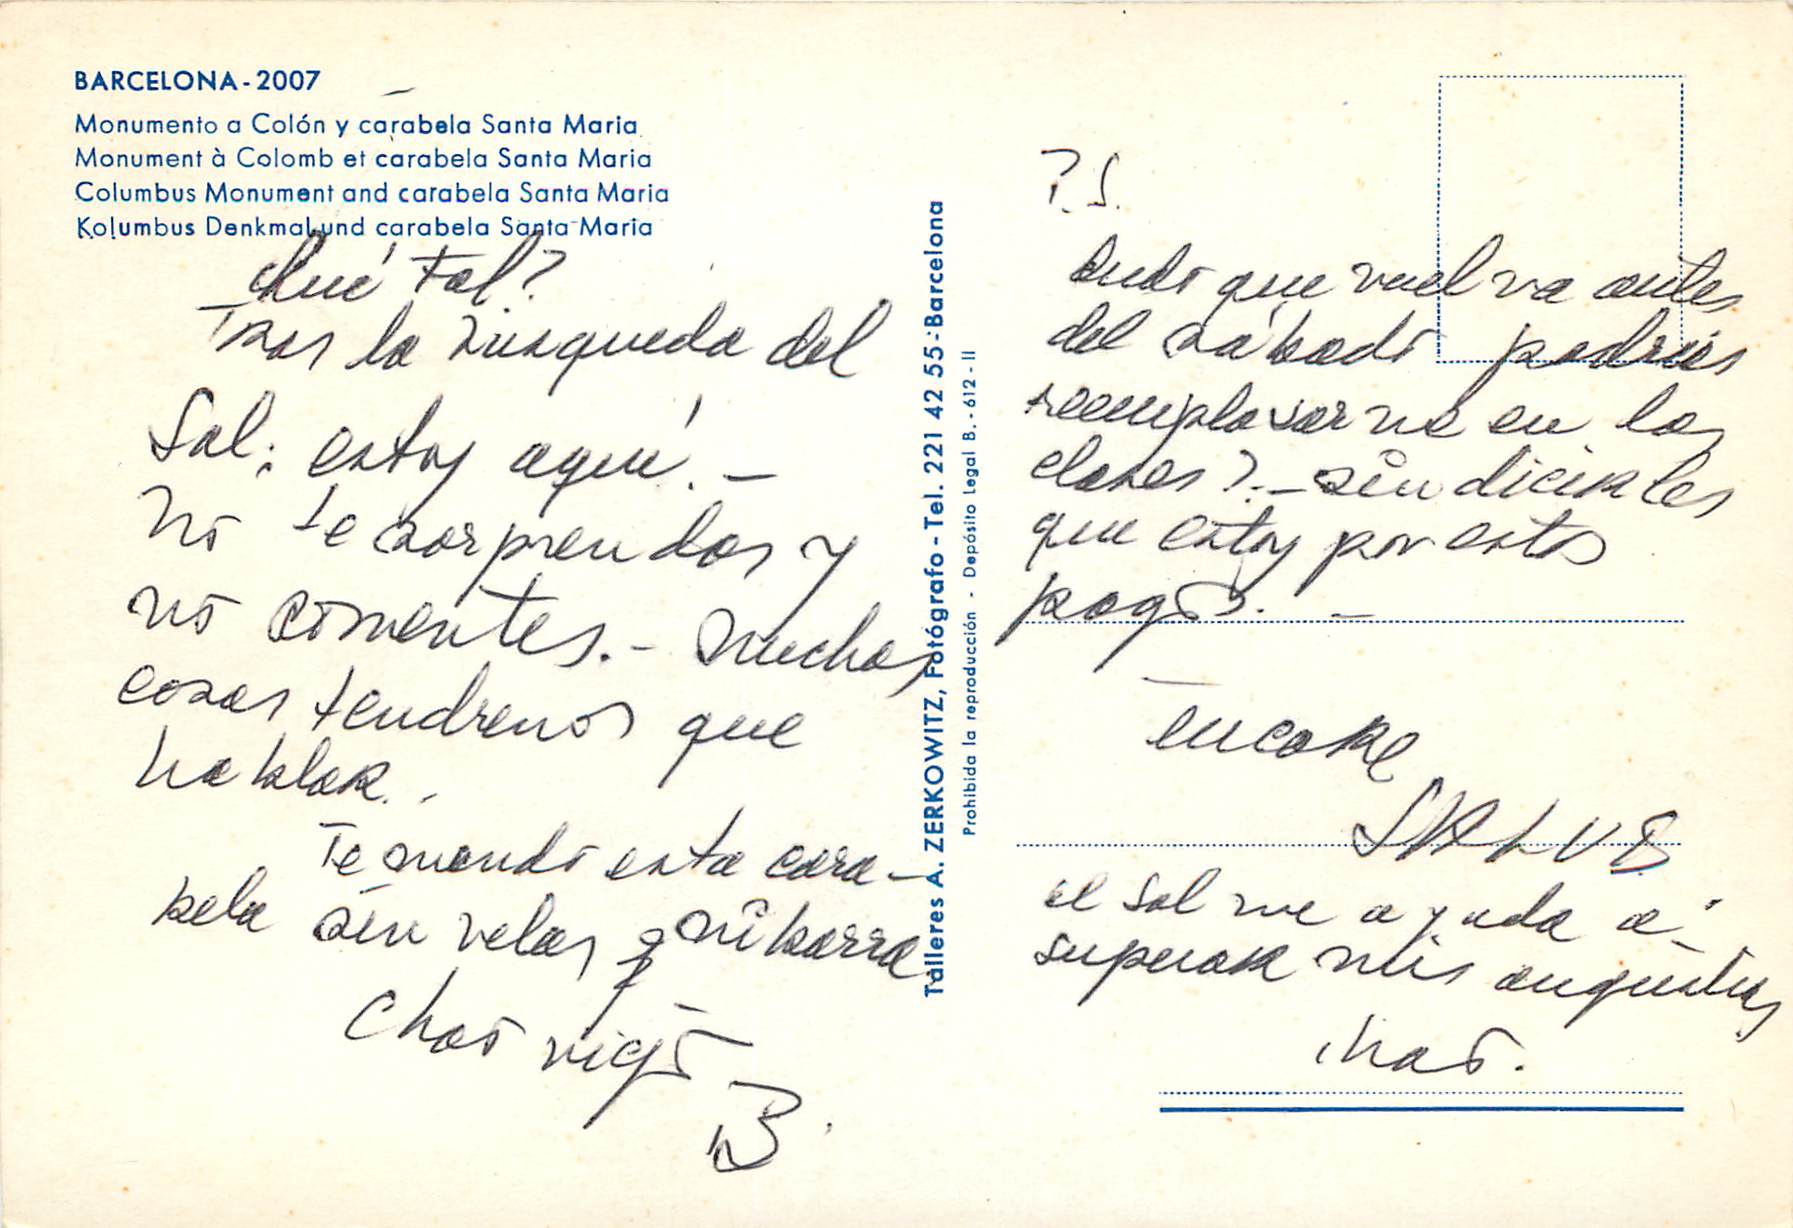 BARCELONA - 2007
Monumento a Colón y carabela Santa Maria
Monument à Colomb et carabela Santa Maria
Columbus Monument and carabela Santa Maria
Kolumbus Denkmal und carabela Santa Maria
Qué tal?
Tras la busqueda del
Sol; estoy aquí.-
No te sorprendas y
no comentes.- Muchas
cosas tendremos que
hablar.-
Te mando esta cara-
bela sin velas y ni barra
Chao viejo
B.
Talleres A. ZERKOWITZ, Fotógrafo - Tel. 221 42 55 - Barcelona
Prohibida la reproducción - Depósito Legal B. - 612 - II
P.S.
dudo que vuelva antes
del sábado podrías
reemplasarme en las
clases?.- sin dicirles
que estoy por estos
pagos.-
el sol me ayuda a
superar mis angustias
chao.